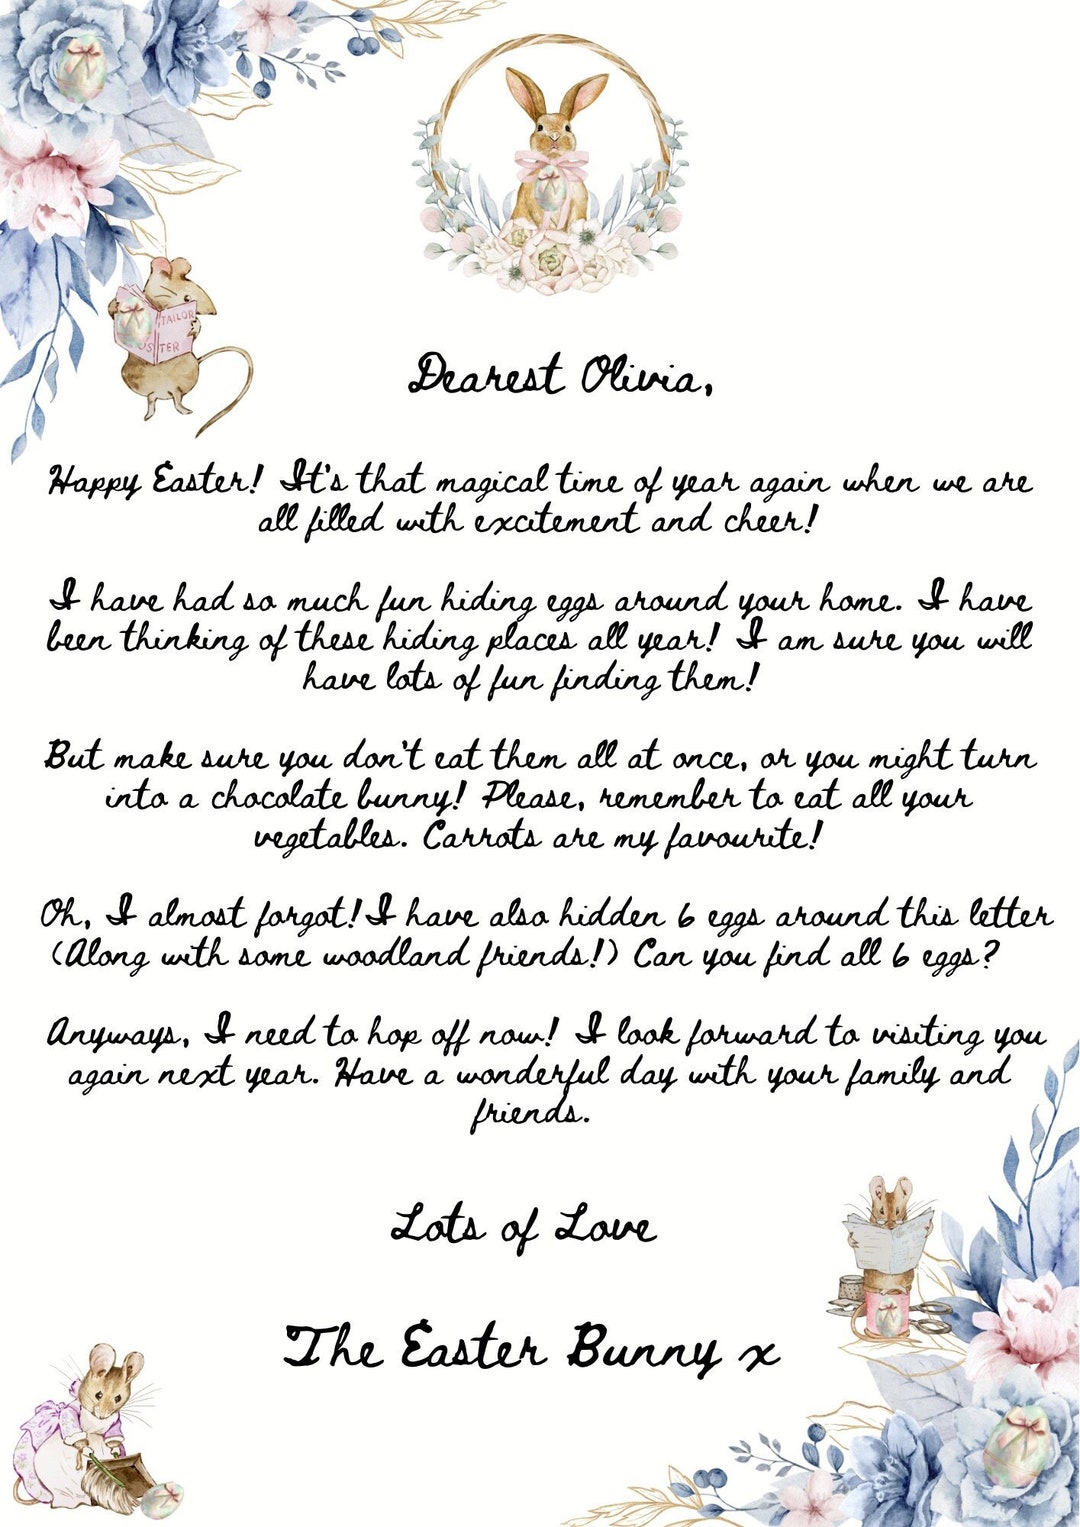 TAILOR
STER
Dearest Olivia,
Happy Easter! It's that magical time of year again when we are
all filled with excitement and cheer!
I have had so much fun hiding eggs around your home. I have
been thinking of these hiding places all year! I am sure you will
have lots of fun finding them!
But make sure you don't eat them all at once, or you might turn
into a chocolate bunny! Please, remember to eat all your
vegetables. Carrots are my favourite!
Oh, I almost forgot! I have also hidden 6 eggs around this letter
(Along with some woodland friends!) Can you find all 6 eggs?
Anyways, I need to hop off now! I look forward to visiting you
again next year. Have a wonderful day with your family and
friends.
Lots of Love
The Easter Bunny x